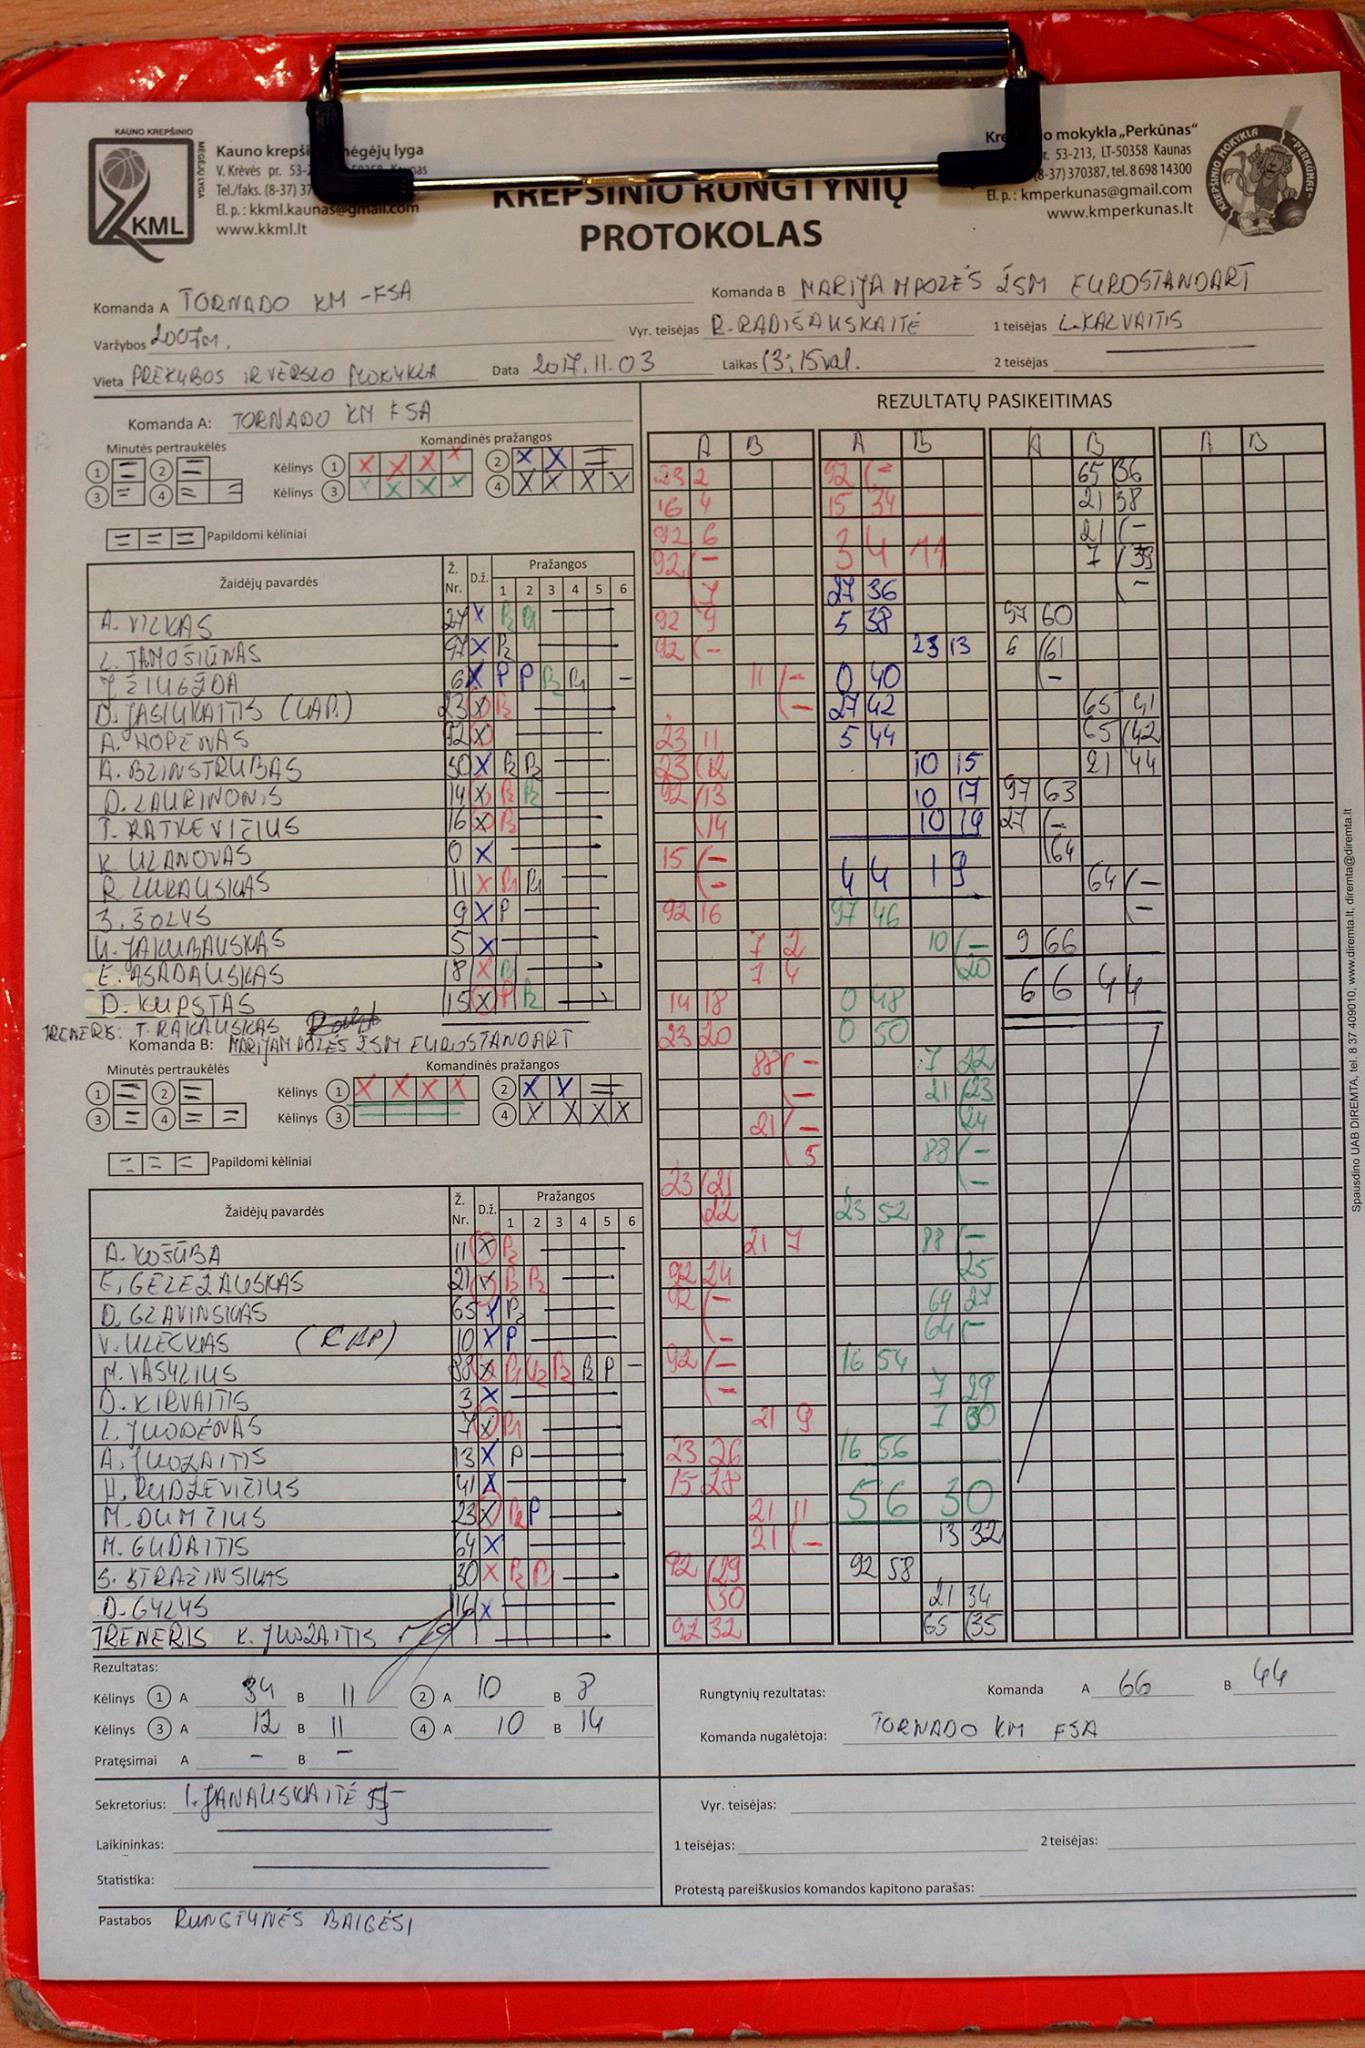 KAUNO KREPŠINIO
MĖGĖJŲ LYGA
KML
Kauno krepši mėgėjų lyga
V. Krėvės pr. 53-2 Kaunas
Tel./faks. (8-37) 37
El. p.: kkml.kaunas@gmail.com
www.kkml.lt
KREPŠINIO RUNGTYNIŲ
PROTOKOLAS
mokykla „Perkūnas“
53-213, LT-50358 Kaunas
(8-37) 370387, tel. 8 698 14300
El. p.: kmperkunas@gmail.com
www.kmperkunas.lt
KREPŠINIO MOKYKLA „PERKŪNAS“
Komanda A TORNADO KM -FSA
Komanda B MARIJAMPOLĖS ŽSM EUROSTANDART
Varžybos 2007m.
Vyr. teisėjas R.RADIŠAUSKAITĖ
1 teisėjas L.KALVAITIS
Vieta PREKYBOS IR VERSLO MOKYKLA
Data 2017.11.03
Laikas 13:15val.
2 teisėjas
Komanda A: TORNADO KM FSA
REZULTATŲ PASIKEITIMAS
Minutės pertraukėlės
Komandinės pražangos
1 = 2 = Kėlinys 1 X X X X 2 X X =
3 = 4 = = Kėlinys 3 X X X X 4 X X X X
= = = Papildomi kėliniai
Žaidėjų pavardės Ž. Nr. D.ž. Pražangos
1 2 3 4 5 6
A. VILKAS 27 X P2 P1
L. TAMOŠIŪNAS 97 X P2
J. ŽIUGŽDA 6 X P P P2 P1 -
D. JASIUKAITIS (CAP.) 23 X P2
A. NOPENAS 92 X
A. BLINSTRUBAS 50 X P2 P2
D. LAURINONIS 14 X P2 P2
T. RATKEVIČIUS 16 X P2
K. ULANOVAS 0 X
R. LUKAUSKAS 11 X P1 P1
9 X P
JAKUBAUSKAS 5 X
E. ASADAUSKAS 18 X P2
D. KUPSTAS 15 X P P2
TRENERIS: T. RAKAUSKAS
Komanda B: MARIJAMPOLĖS ŽSM EUROSTANDART
Minutės pertraukėlės
Komandinės pražangos
1 = 2 = Kėlinys 1 X X X X 2 X X =
3 = 4 = = Kėlinys 3 4 X X X X
= = = Papildomi kėliniai
Žaidėjų pavardės Ž. Nr. D.ž. Pražangos
1 2 3 4 5 6
A. KOŠŪBA 11 X P2
E. GELEŽAUSKAS 21 X P2 P2
D. GLAVINSKAS 65 X P2
V. ULECKAS (CAP) 10 X P
M. VASYLIUS 88 X P1 U2 P2 P2 P -
D. KIRVAITIS 3 X
L. JUODĖNAS 7 X P1
A. JUOZAITIS 13 X P
H. RUDZEVIČIUS 41 X
M. DUMČIUS 23 X P2 P
M. GUDAITIS 64 X
S. STRAZINSKAS 30 X P2 P
D. GYLYS 16 X
TRENERIS K. JUOZAITIS
A B A B A B A B
23 2
16 4
92 6
92 (-
7
92 9
92 (-
11 (-
-
23 11
23 (12
92 (13
(14
15 (-
-
92 16
7 2
7 4
14 18
23 20
88 (-
-
21 (-
5
23 (21
22
21 7
92 24
92 (-
-
92 (-
-
21 9
23 26
15 28
21 11
21 (-
92 (29
(30
92 32
92 (-
15 34
34 11
27 36
5 38
23 13
0 40
27 42
5 44
10 15
10 17
10 19
44 19
97 46
10 (-
20
0 48
0 50
7 22
21 (23
24
88 (-
-
23 52
88 (-
25
64 27
64 (-
16 54
7 29
7 30
16 56
56 30
13 32
92 58
21 34
65 (35
65 36
21 38
21 (-
7 (39
-
97 60
6 (61
-
65 41
65 (42
21 44
97 63
27 (-
(64
64 (-
-
9 66
66 44
Rezultatas:
Kėlinys 1 A 34 B 11 2 A 10 B 8
Kėlinys 3 A 12 B 11 4 A 10 B 14
Pratęsimai A - B -
Rungtynių rezultatas: Komanda A 66 B 44
Komanda nugalėtoja: TORNADO KM FSA
Sekretorius: I. JANAUSKAITĖ
Laikininkas:
Statistika:
Vyr. teisėjas:
1 teisėjas: 2 teisėjas:
Protestą pareiškusios komandos kapitono parašas:
Pastabos RUNGTYNĖS BAIGĖSI
Spausdino UAB DIREMTA, tel. 8 37 409010, www.diremta.lt, diremta@diremta.lt